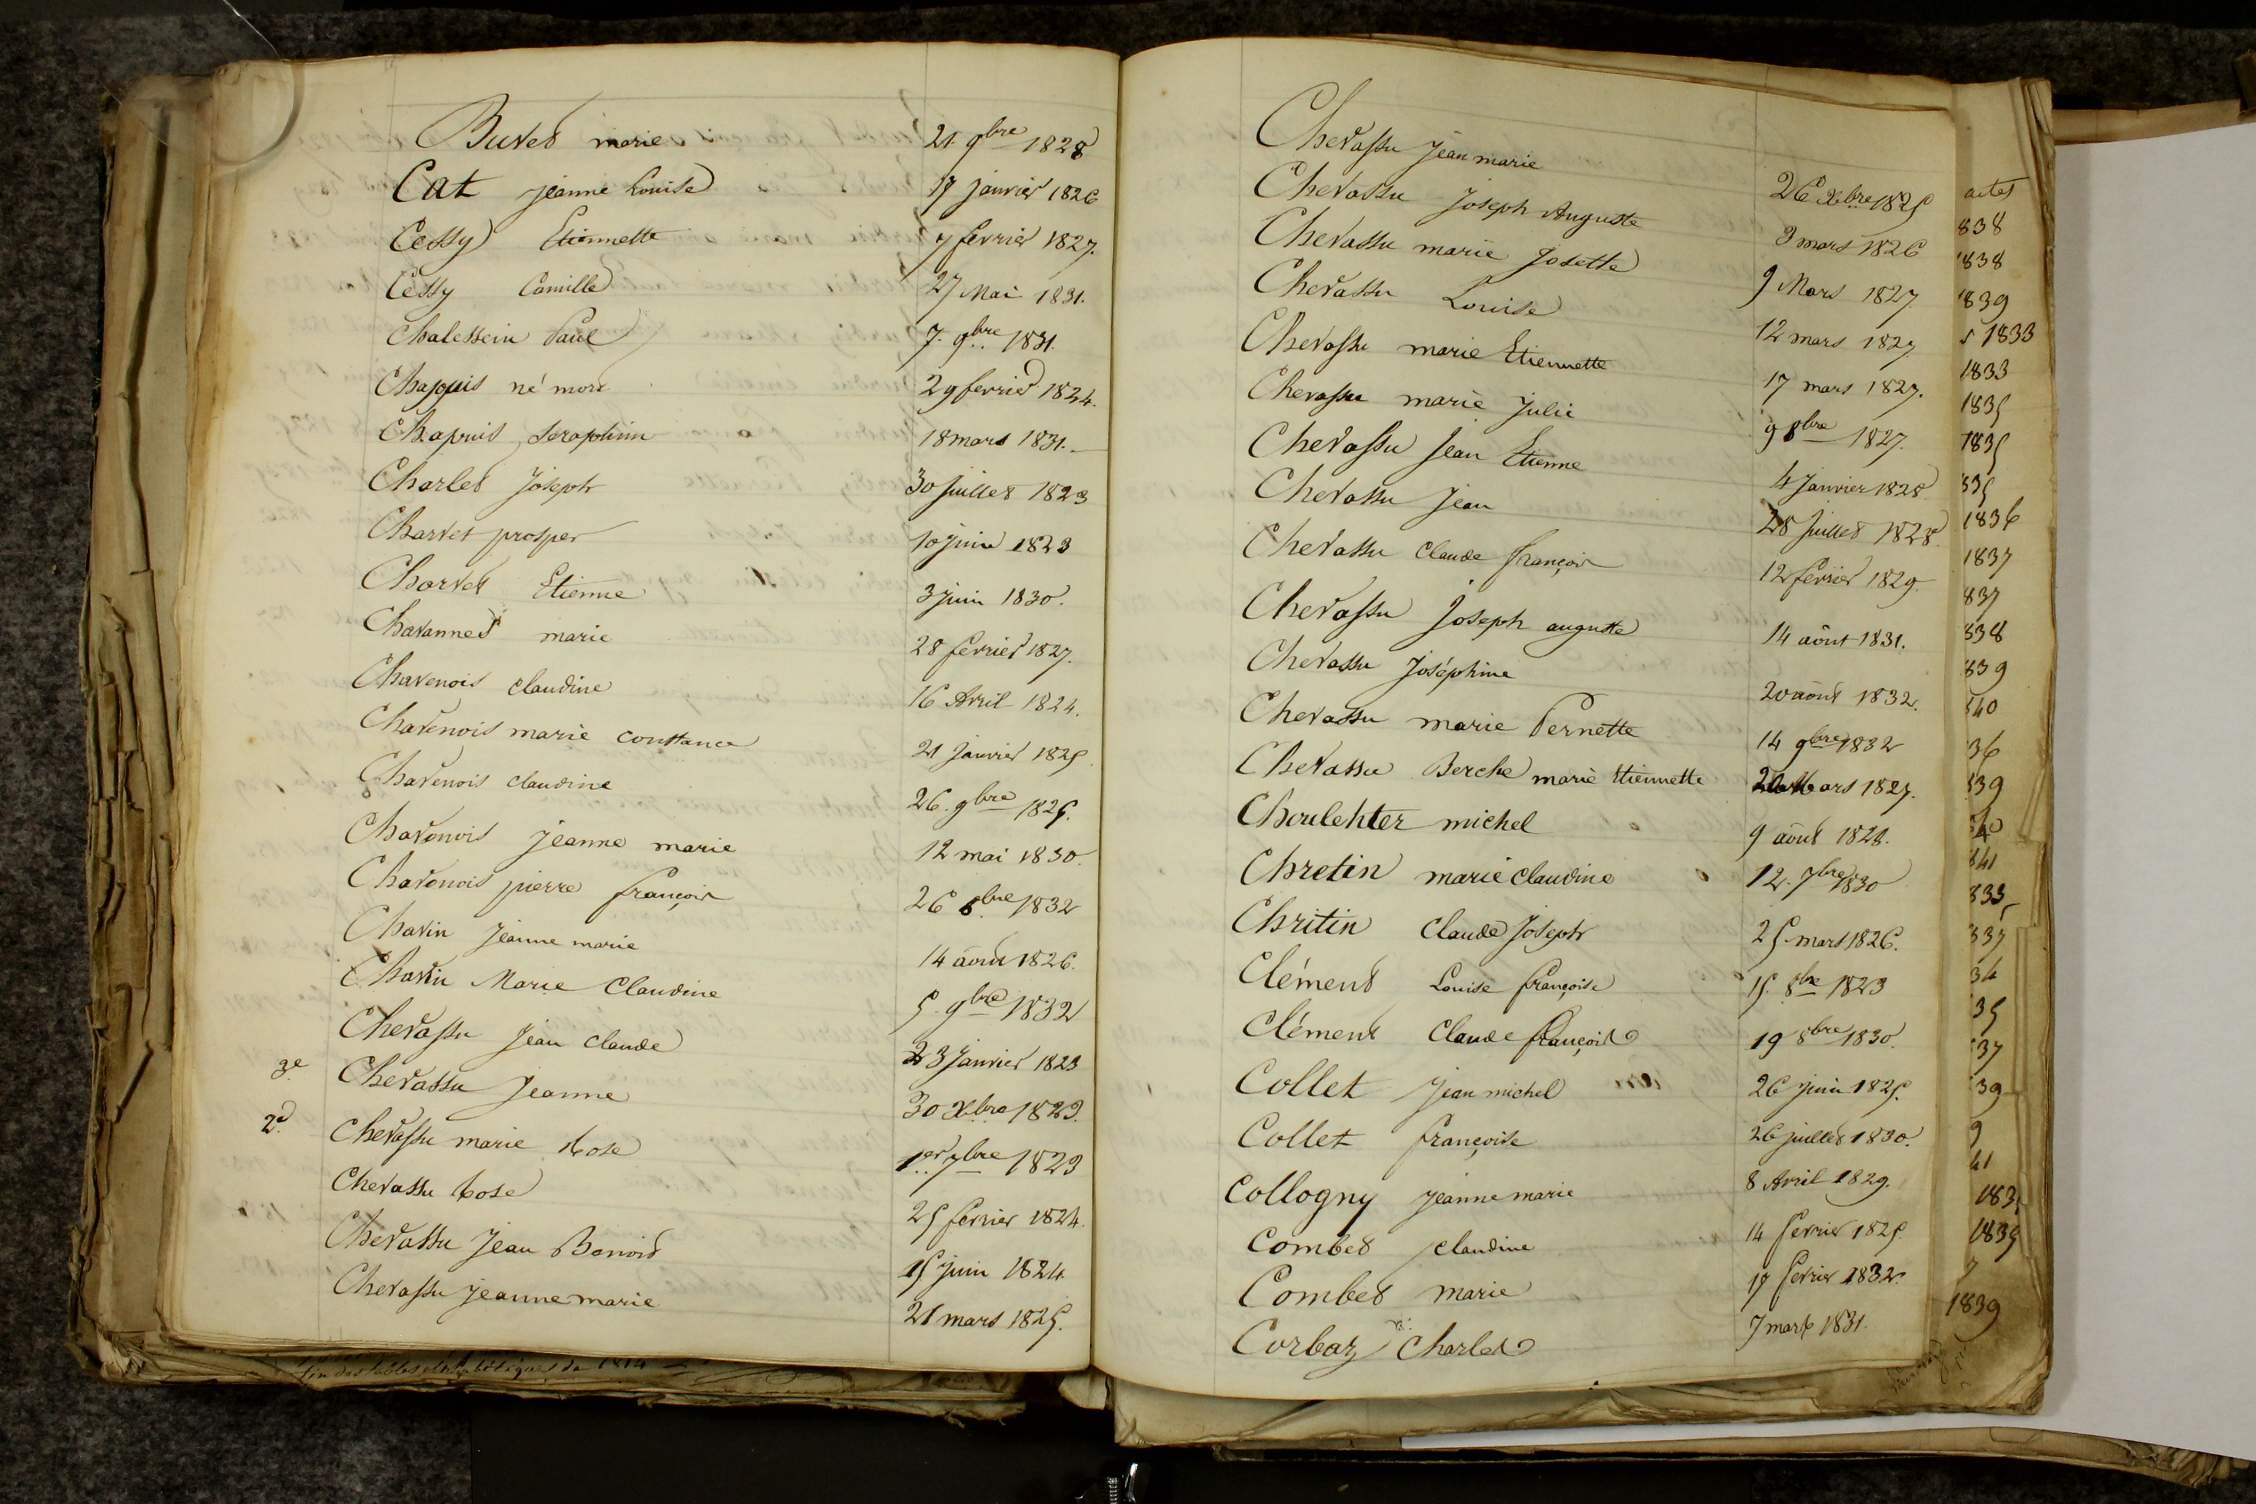 Buvet marie 21 9bre 1828
Cat jeanne Louise 17 janvier 1826
Cessy Etiennette 7 fevrier 1827.
Cessy Camille 27 Mai 1831.
Chalessein Paul 7. 9bre 1831.
Chapuis né mort 29 fevrier 1824.
Chapuis Seraphim 18 mars 1831.
Charles Joseph 30 juillet 1823
Charvet prosper 10 juin 1823
Charvet Etienne 3 juin 1830.
Chavannes marie 28 fevrier 1827.
Chavenois claudine 16 Avril 1824.
Chavenois marie constance 21 Janvier 1825.
Chavenois claudine 26. 9bre 1825.
Chavenois jeanne marie 12 mai 1830.
Chavenois pierre françois 26 8bre 1832
Chavin Jeanne marie 14 août 1826.
Chavin Marie Claudine 5. 9bre 1832
Chevassu Jean claude 23 Janvier 1823
3e Chevassu Jeanne 30 Xbre 1823.
2d Chevassu marie Rose 1er 7bre 1823
Chevassu Rose 25 fevrier 1824.
Chevassu Jean Benoit 15 Juin 1824
Chevassu Jeanne marie 21 mars 1825.
fin des tables alphabétiques de 1814
Chevassu Jean marie 26 Xbre 1825
Chevassu Joseph Auguste 3 mars 1826
Chevassu marie Josette 9 Mars 1827
Chevassu Louise 12 mars 1827
Chevassu marie Etiennette 17 mars 1827.
Chevassu marie Julie 9 8bre 1827.
Chevassu Jean Etienne 4 Janvier 1828
Chevassu Jean 28 Juillet 1828.
Chevassu Claude françois 12 fevrier 1829.
Chevassu Joseph auguste 14 août 1831.
Chevassu Joséphine 20 août 1832.
Chevassu marie Pernette 14 9bre 1832
Chevassu Berche marie Etiennette 20 Mars 1827.
Choulehter michel 9 août 1828.
Chretin marie claudine 12. 7bre 1830
Chritin Claude Joseph 25 mars 1826.
Clément Louise françoise 15. 8bre 1823
Clément Claude françois 19 8bre 1830.
Collet Jean michel 26 juin 1825.
Collet françoise 26 juillet 1830.
Collogny Jeanne marie 8 Avril 1829.
Combet claudine 14 fevrier 1825.
Combet marie 17 fevrier 1832.
Corbaz Charles 7 mars 1831.
actes
838
838
839
1833
1833
1835
1835
835
1836
1837
837
838
839
840
36
839
841
835
837
34
35
37
39
9
41
1835
1839